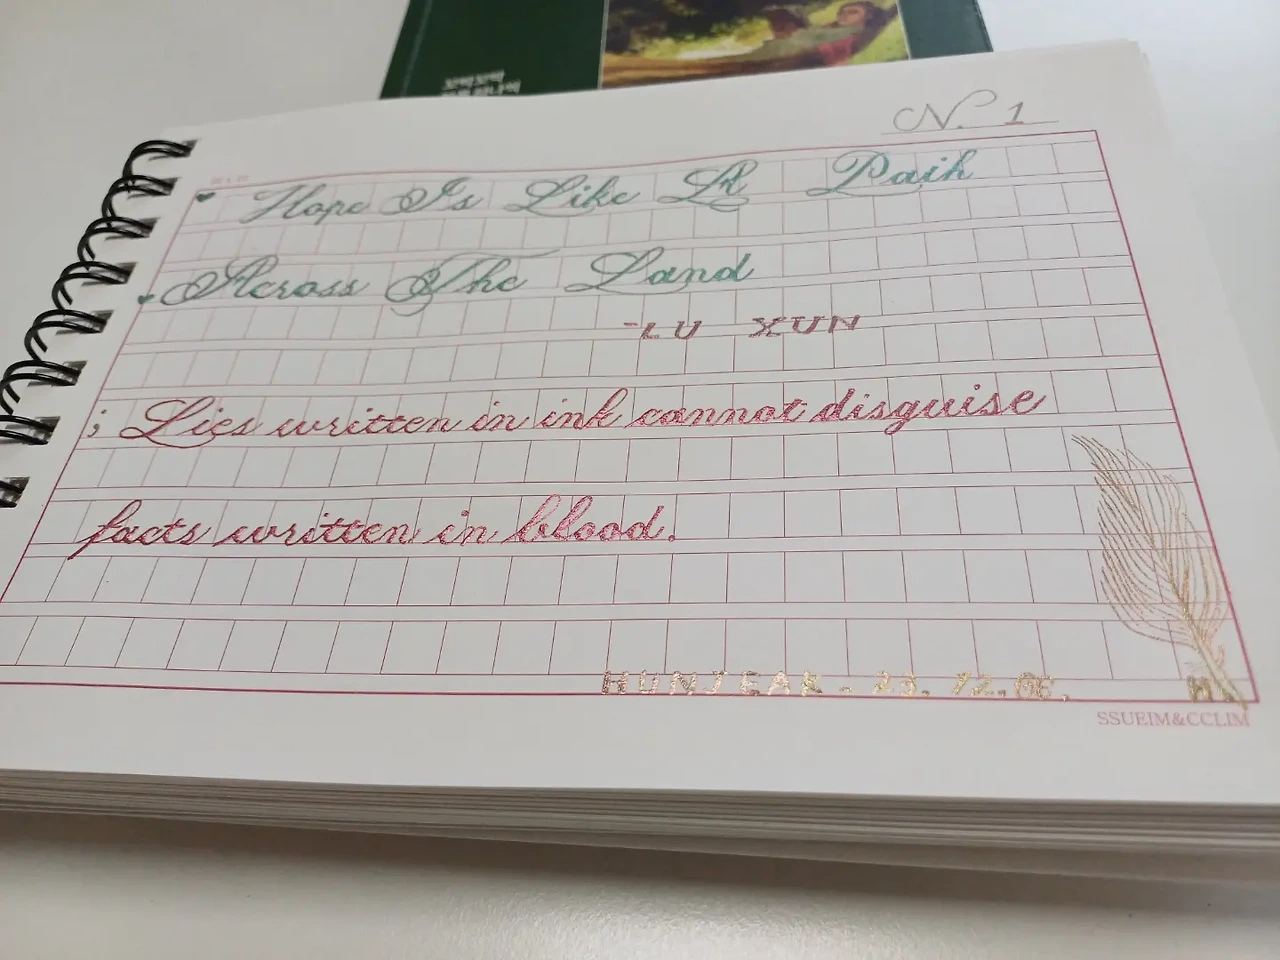 N. 1
Hope Is Like A Path
Across The Land
-LU XUN
; Lies written in ink cannot disguise
facts written in blood.
HUNJEAR - 23. 12. 06.
SSUEIM&CCLIM